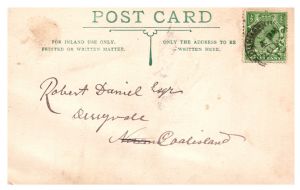 POST CARD
FOR INLAND USE ONLY.
PRINTED OR WRITTEN MATTER.
ONLY THE ADDRESS TO BE
WRITTEN HERE.
Robert Daniel Esqr
Derryvale
Coalisland